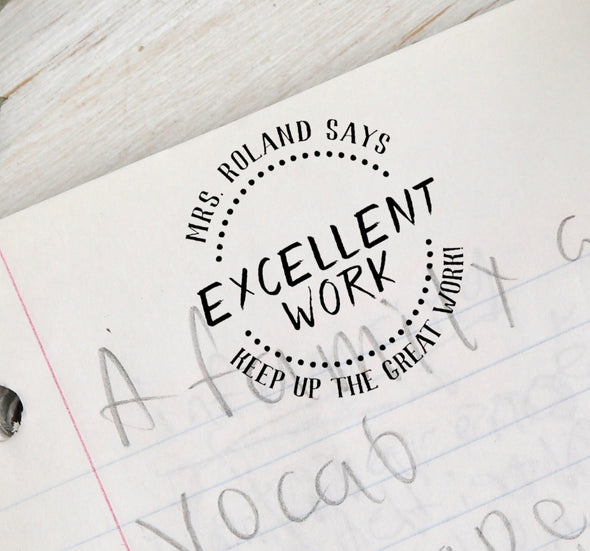 MRS. ROLAND SAYS
EXCELLENT
WORK
KEEP UP THE GREAT WORK!
A family
Vocab